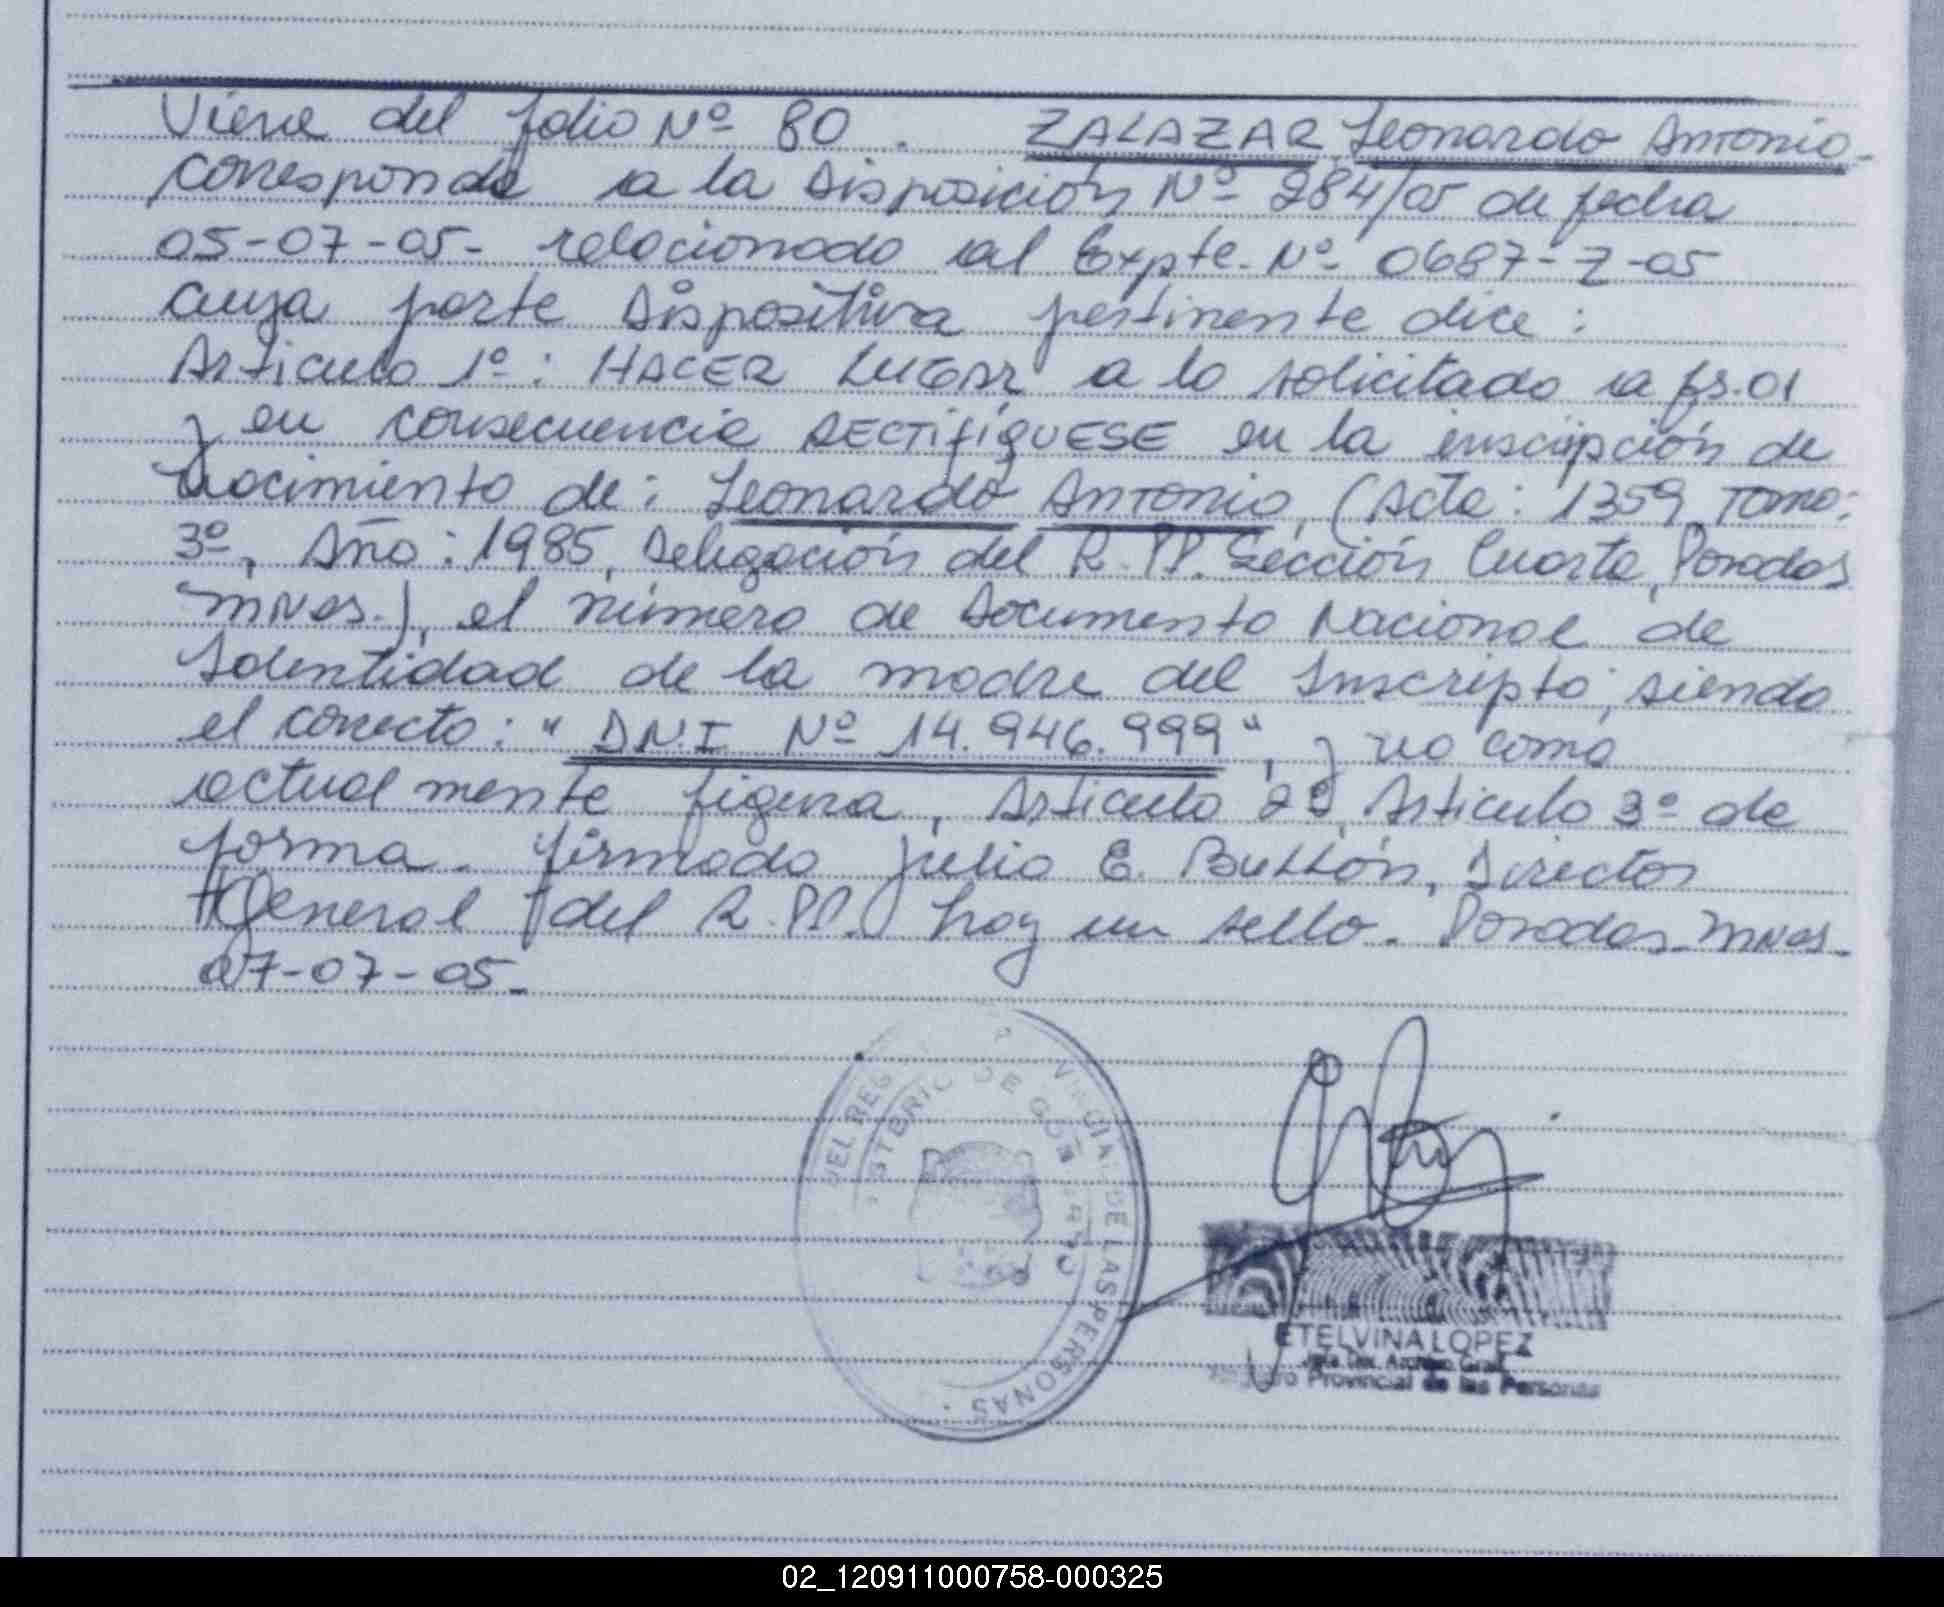 Viene del folio Nº 80. ZALAZAR, Leonardo Antonio-
corresponde a la Disposición Nº 284/05 de fecha
05-07-05- relacionado al Expte. Nº 0687-Z-05
cuya parte Dispositiva pertinente dice:
Artículo 1º: HACER LUGAR a lo solicitado a fs. 01
y en consecuencia RECTIFIQUESE en la inscripción de
Nacimiento de: Leonardo Antonio, (Acta: 1359, Tomo:
3º, Año: 1985, Delegación del R.PP. Sección Cuarta, Posadas
Mnes.), el número de Documento Nacional de
Identidad de la madre del Inscripto; siendo
el correcto: "DN.I Nº 14.946.999", y no como
actualmente figura, Artículo 2º, Artículo 3º de
forma. firmado Julio E. Buttón, Director
General del R.PP. hay un sello. Posadas-Mnes-
07-07-05-
DEL REG VINCIA DE LAS PERSONAS
ISTERIO DE GOBIERNO
ETELVINA LOPEZ
Jefe Dto. Archivo Gral.
Registro Provincial de las Personas
02_120911000758-000325